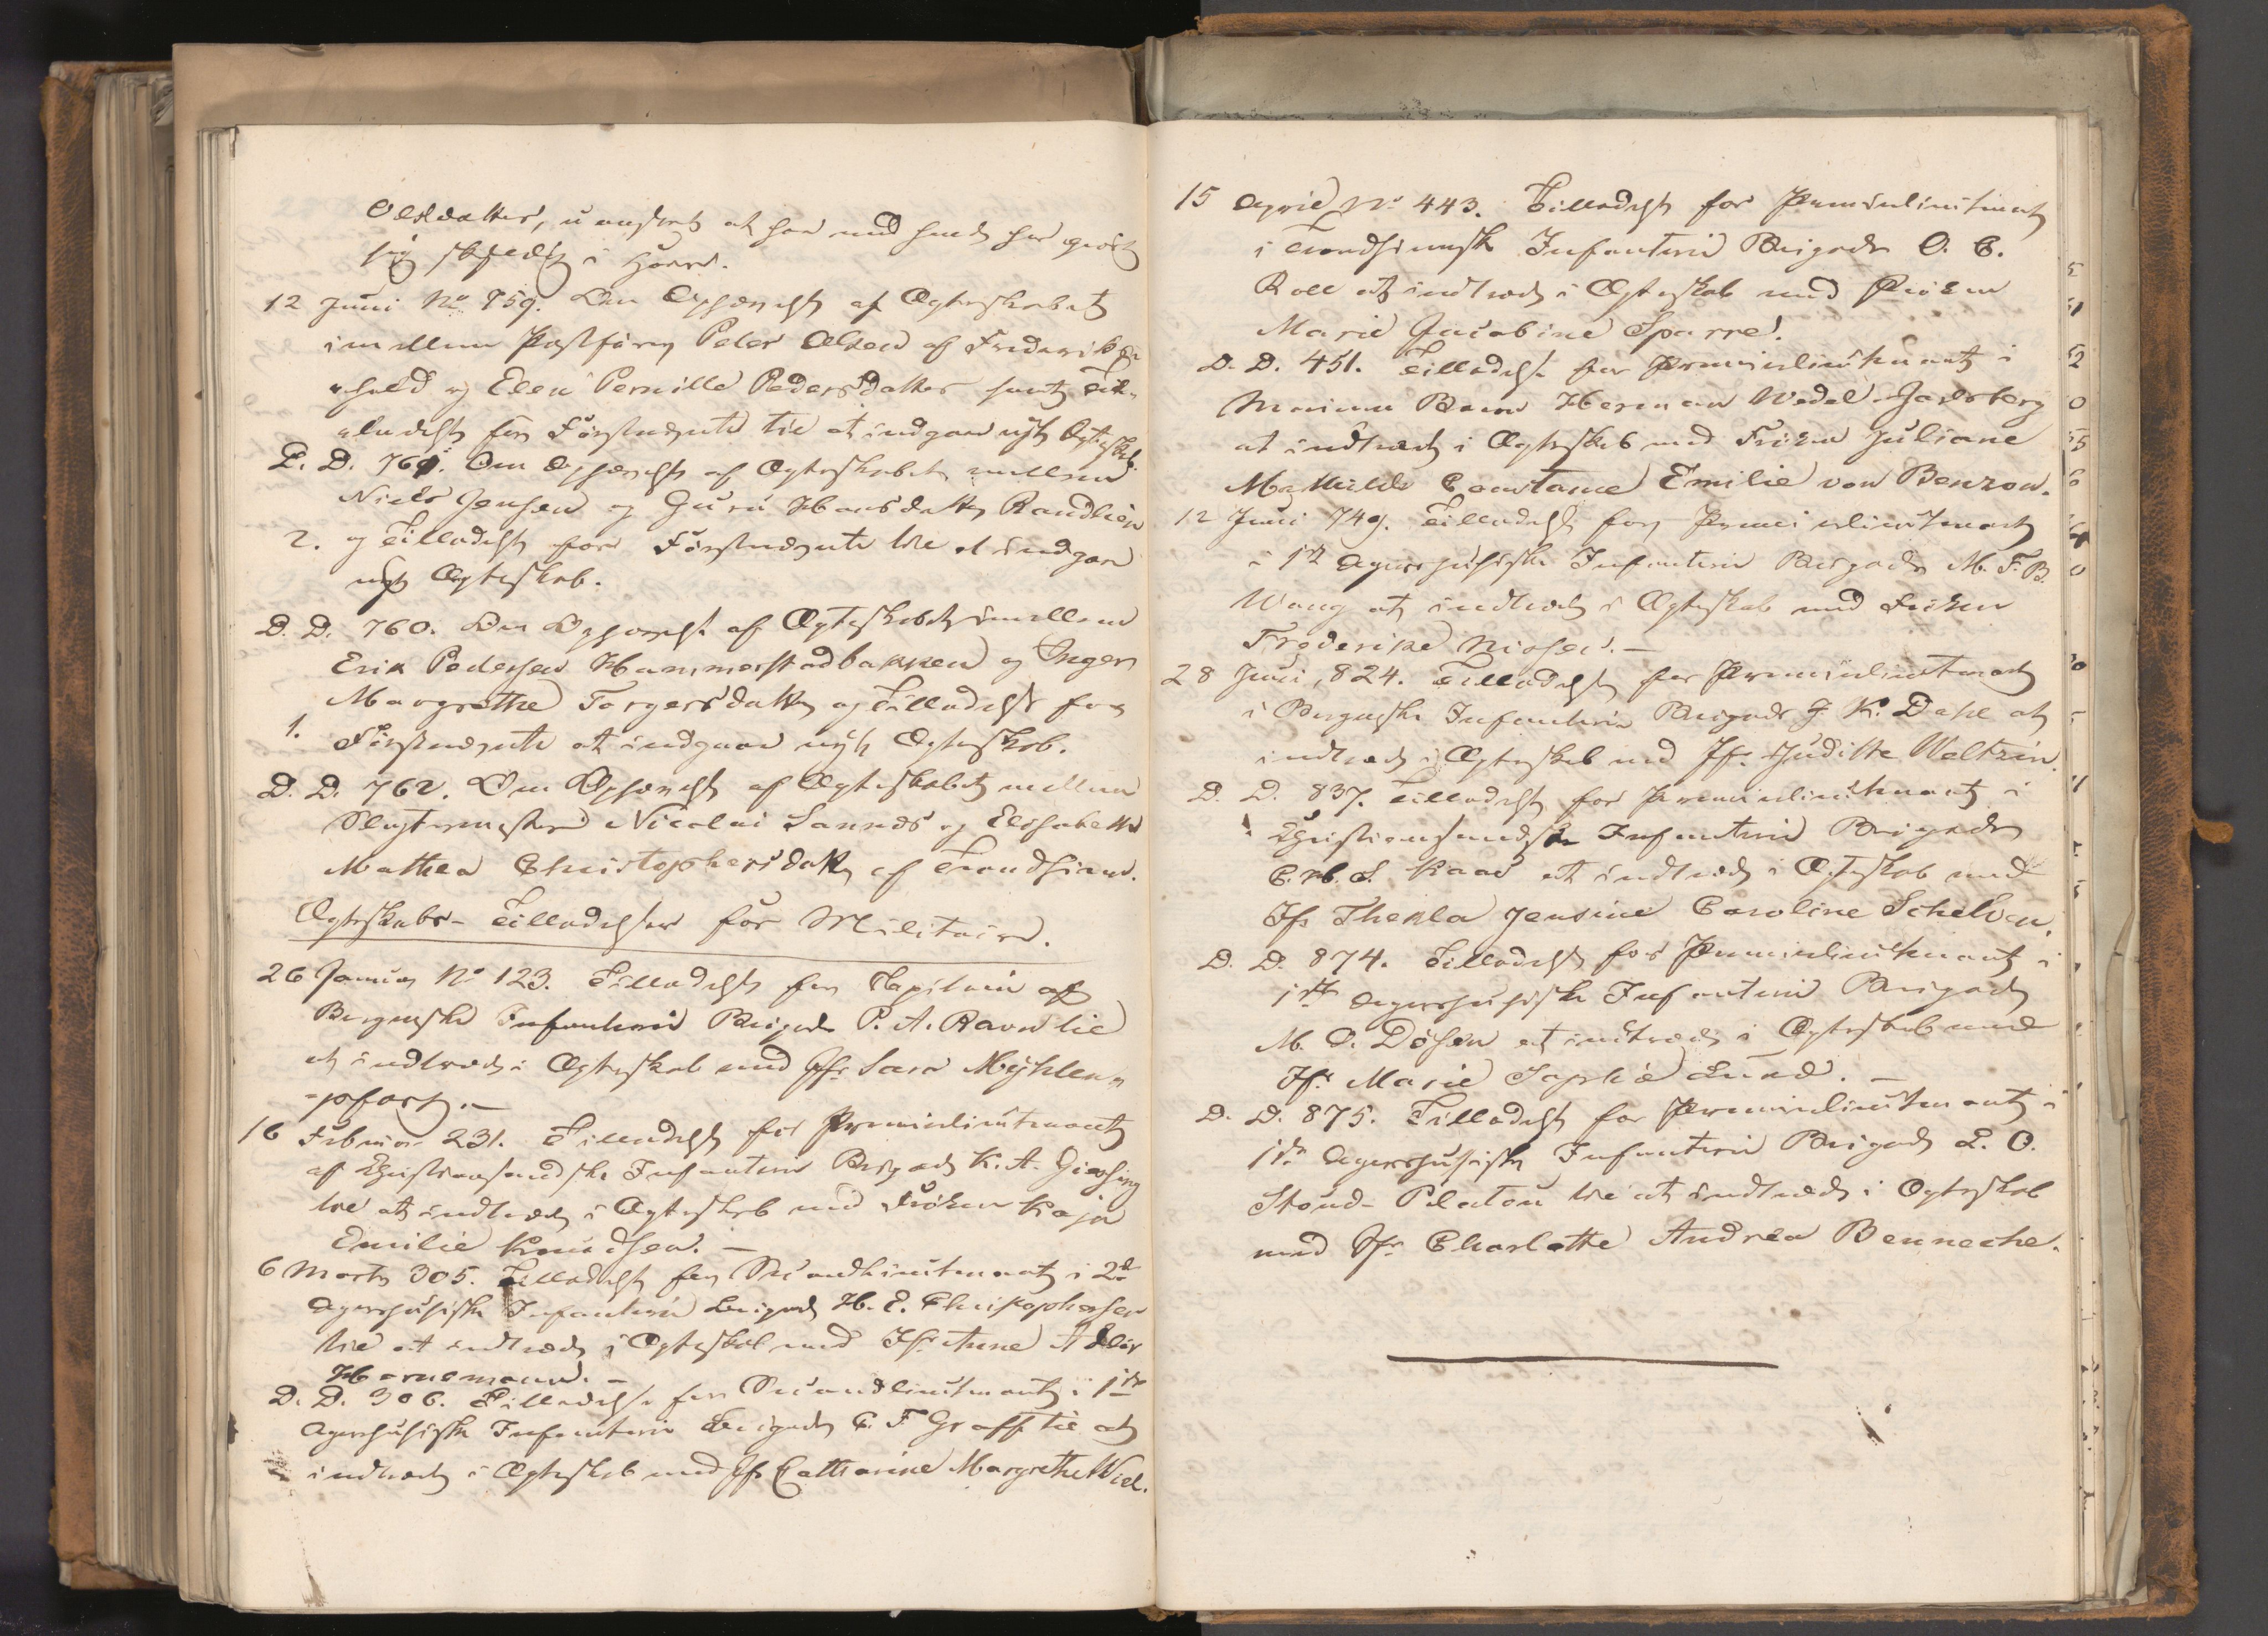 Olsdatter, uanseet at han med hende har gjort
sig skyldig i Hoer.
12 Juni No 759. Om Ophævelse af Ægteskabet
imellem Postfører Peter Olsen af Frederiks-
hald og Elen Pernille Pedersdatter samt Til-
ladelse for Førstnævnte til at indgaae nyt Ægteskab.
D. D. 761. Om Ophævelse af Ægteskabet mellem
Niels Jensen og Guru Hansdatter Randlien
2. og Tilladelse for Førstnævnte til at indgaae
nyt Ægteskab.
D. D. 760. Om Ophævelse af Ægteskabet imellem
Erik Pedersen Hammerstadbakken og Inger
Margrethe Torgersdatter og Tilladelse for
1. Førstnævnte at indgaae nyt Ægteskab.
D. D. 762. Om Ophævelse af Ægteskabet mellem
Slagtermester Nicolai Sannæs og Elisabeth
Mathea Christophersdatter af Trondhiem.
Ægteskabs-Tilladelser for Militaire.
26 Januar No 123. Tilladelse for Capitain af
Bergenske Infanterie Brigade P. A. Ravn til
at indtræde i Ægteskab med Jfr Sara Mÿhlen-
-pfort.-
16 Februar 231. Tilladelse for Premierlieutenant
af Christiansandske Infanterie Brigade K. A. Giersing
til at indtræde i Ægteskab med Frøken Kaja
Emilie Knudsen. -
6 Marts 305. Tilladelse for Secondlieutenant i 2de
Agershusiske Infanterie Brigade H. E. Christophersen
til at indtræde i Ægteskab med Jfr Anne
Hornemann. -
D. D. 306. Tilladelse for Secondlieutenant i 1ste
Agershusiske Infanterie Brigade C. F Graff til at
indtræde i Ægteskab med Jfr Catharine Margrethe Wiel.
15 April No 443. Tilladelse for Premierlieutenant
i Trondhiemske Infanterie Brigade O. C.
Roll at indtræde i Ægteskab med Frøken
Marie Jacobine Sparre.
D. D. 451. Tilladelse for Premierlieutenant i
Marinen Baron Herman Wedel-Jarlsberg
at indtræde i Ægteskab med Frøken Juliane
Mathilde Constance Emilie von Benzon.
12 Juni 749. Tilladelse for Premierlieutenant
i 1ste Agershusiske Infanterie Brigade M. F. B.
Wang at indtræde i Ægteskab med Frøken
Frederike Nissen. -
28 Juni, 824. Tilladelse for Premierlieutenant
i Bergenske Infanterie Brigade J. K. Dahl at
indtræde i Ægteskab med Jfr. Judithe Weltzin.
D. D. 837. Tilladelse for Premierlieutenant i
Christiansandske Infanterie Brigade
C. H. S. Kaas at indtræde i Ægteskab med
Jfr Thekla Jensine Caroline Schelven.
D. D. 874. Tilladelse for Premierlieutenant i
1ste Agershusiske Infanterie Brigade
M. O. Døsen at indtræde i Ægteskab med
Jfr. Marie Sophie Lund. -
D. D. 875. Tilladelse for Premierlieutenant i
1ste Agershusiske Infanterie Brigade L. O.
Stoud-Platou til at indtræde i Ægteskab
med Jfr Charlotte Andrea Benneche.